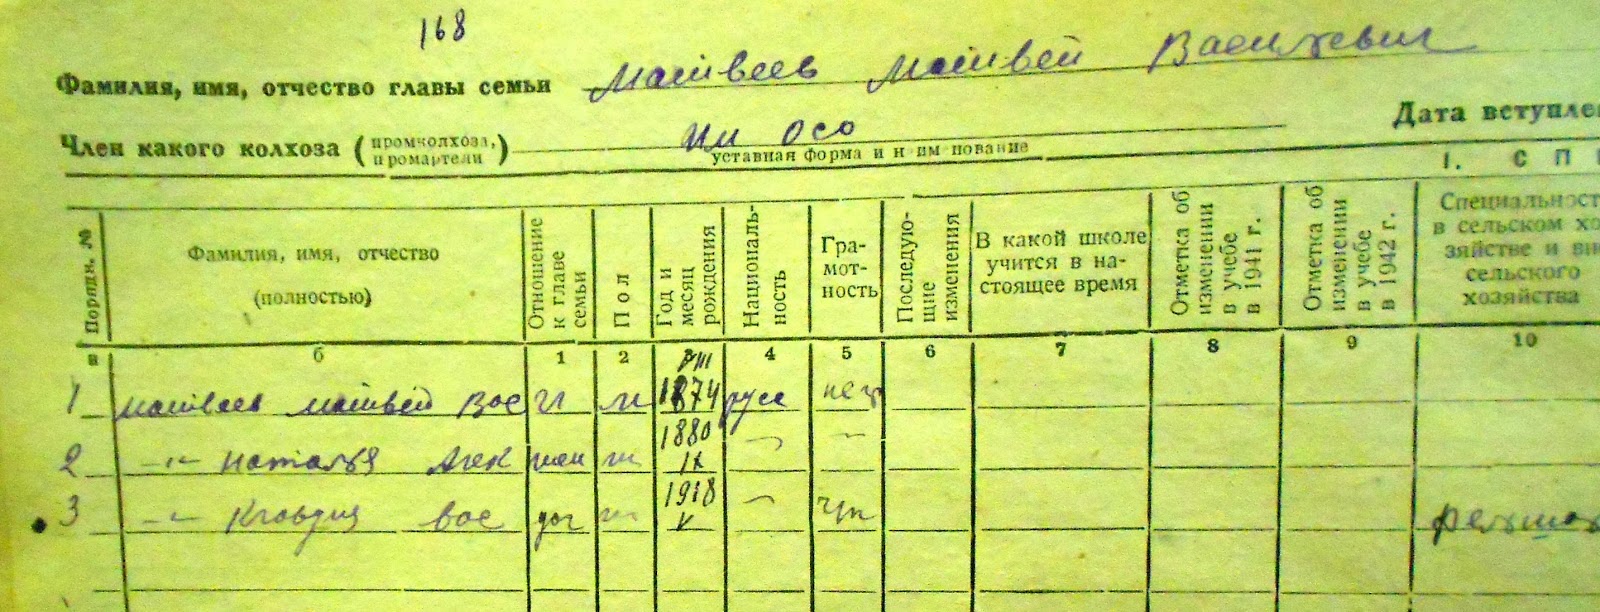 168
Фамилия, имя, отчество главы семьи Матвеев Матвей Васильевич
Член какого колхоза (промколхоза, промартели) им Осо
уставная форма и н им нование
Дата вступле
1. С П
Порядн. №
Фамилия, имя, отчество (полностью)
Отношение к главе семьи
Пол
Год и месяц рождения
Националь-ность
Гра-мот-ность
Последую-щие изменения
В какой школе учится в на-стоящее время
Отметка об изменении в учебе в 1941 г.
Отметка об изменении в учебе в 1942 г.
Специальност в сельском хо зяйстве и вн сельского хозяйства
а б 1 2 3 4 5 6 7 8 9 10
1 Матвеев Матвей Вас гл м VIII 1874 русс негр
2 -"- Наталья Алек жен ж 1880 IX - -
3 -"- Клавдия Вас доч ж 1918 V - гр